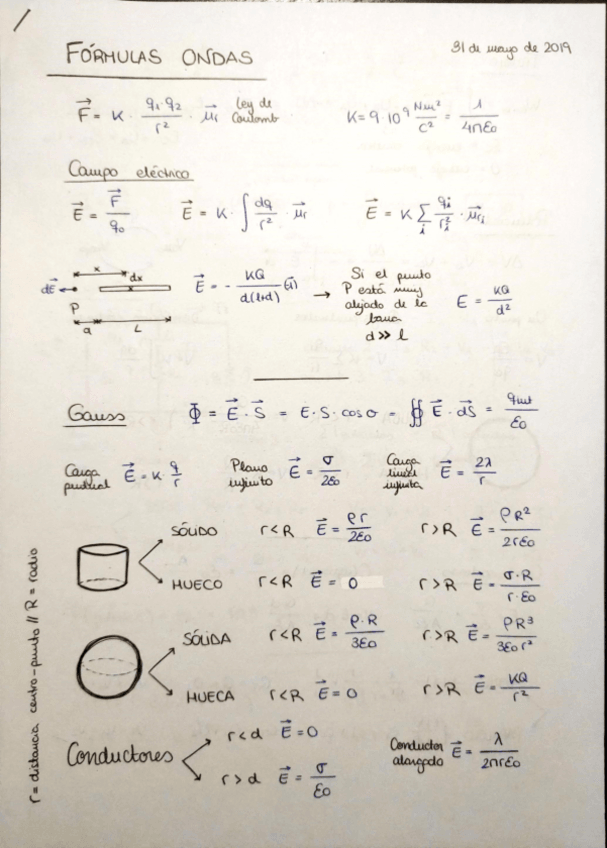 FÓRMULAS ONDAS
31 de mayo de 2019
F⃗ = K · q₁·q₂/r² · μ⃗r Ley de Coulomb K = 9·10⁹ Nm²/C² = 1/4πε₀
Campo eléctrico
E⃗ = F⃗/q₀ E⃗ = K · ∫ dq/r² · μ⃗r E⃗ = K ∑i qi/ri² · μ⃗ri
x dx
dE⃗ P a L
E⃗ = - KQ/d(l+d) (i⃗) → Si el punto P está muy alejado de la barra d >> l E = KQ/d²
Gauss Φ = E⃗ · S⃗ = E · S · cos σ = ∯ E⃗ · dS⃗ = qint/ε₀
Carga puntual E⃗ = K · q/r Plano infinito E⃗ = σ/2ε₀ Carga lineal infinita E⃗ = 2λ/r
SÓLIDO r < R E⃗ = ρr/2ε₀ r > R E⃗ = ρR²/2rε₀
HUECO r < R E⃗ = 0 r > R E⃗ = σ·R/r·ε₀
SÓLIDA r < R E⃗ = ρ·R/3ε₀ r > R E⃗ = ρR³/3ε₀r²
HUECA r < R E⃗ = 0 r > R E⃗ = KQ/r²
Conductores r < d E⃗ = 0
r > d E⃗ = σ/ε₀
Conductor alargado E⃗ = λ/2πrε₀
r = distancia centro-punto // R = radio